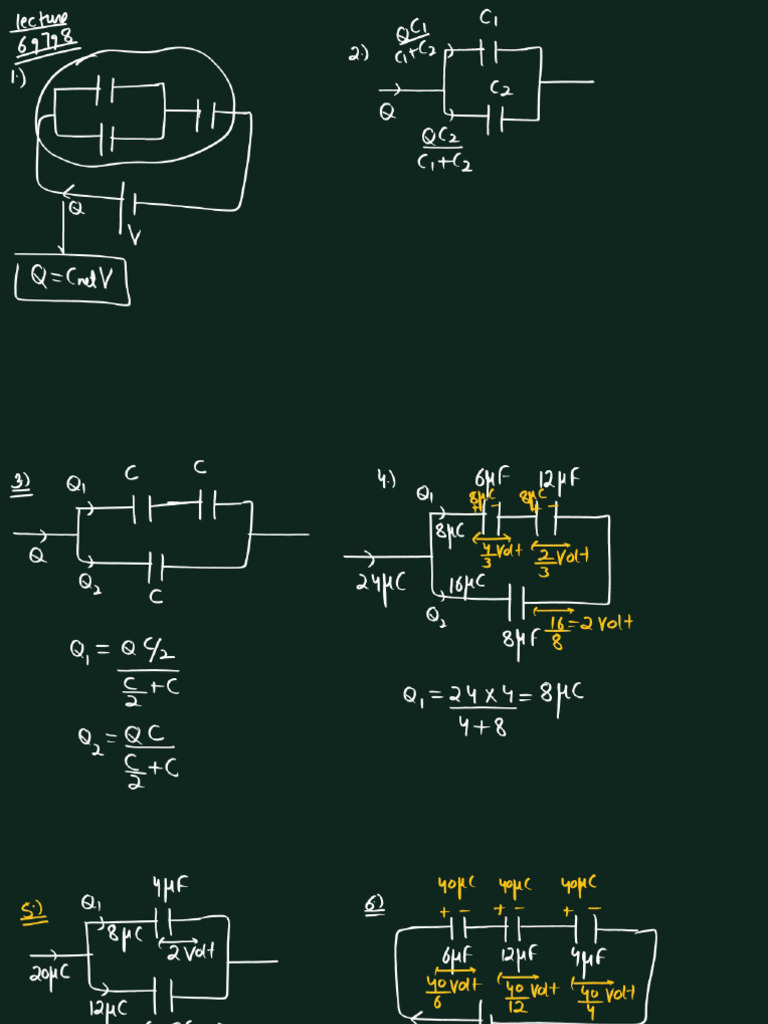 lecture
69798
1.)
Q
V
Q = CnetV
2.)
QC1/C1+C2
C1
Q
C2
QC2/C1+C2
3)
Q1 C C
Q
Q2
C
Q1 = QC/2 / C/2 + C
Q2 = QC / C/2 + C
4.)
6μF 12μF
Q1 8μC 8μC
+ - + -
8μC
4/3 Volt 2/3 Volt
24μC
16μC
Q2
8μF 16/8 = 2 Volt
Q1 = 24×4/4+8 = 8μC
5.)
4μF
Q1
8μC
2 Volt
20μC
12μC
6)
40μC 40μC 40μC
+ - + - + -
6μF 12μF 4μF
40/6 Volt 40/12 Volt 40/4 Volt